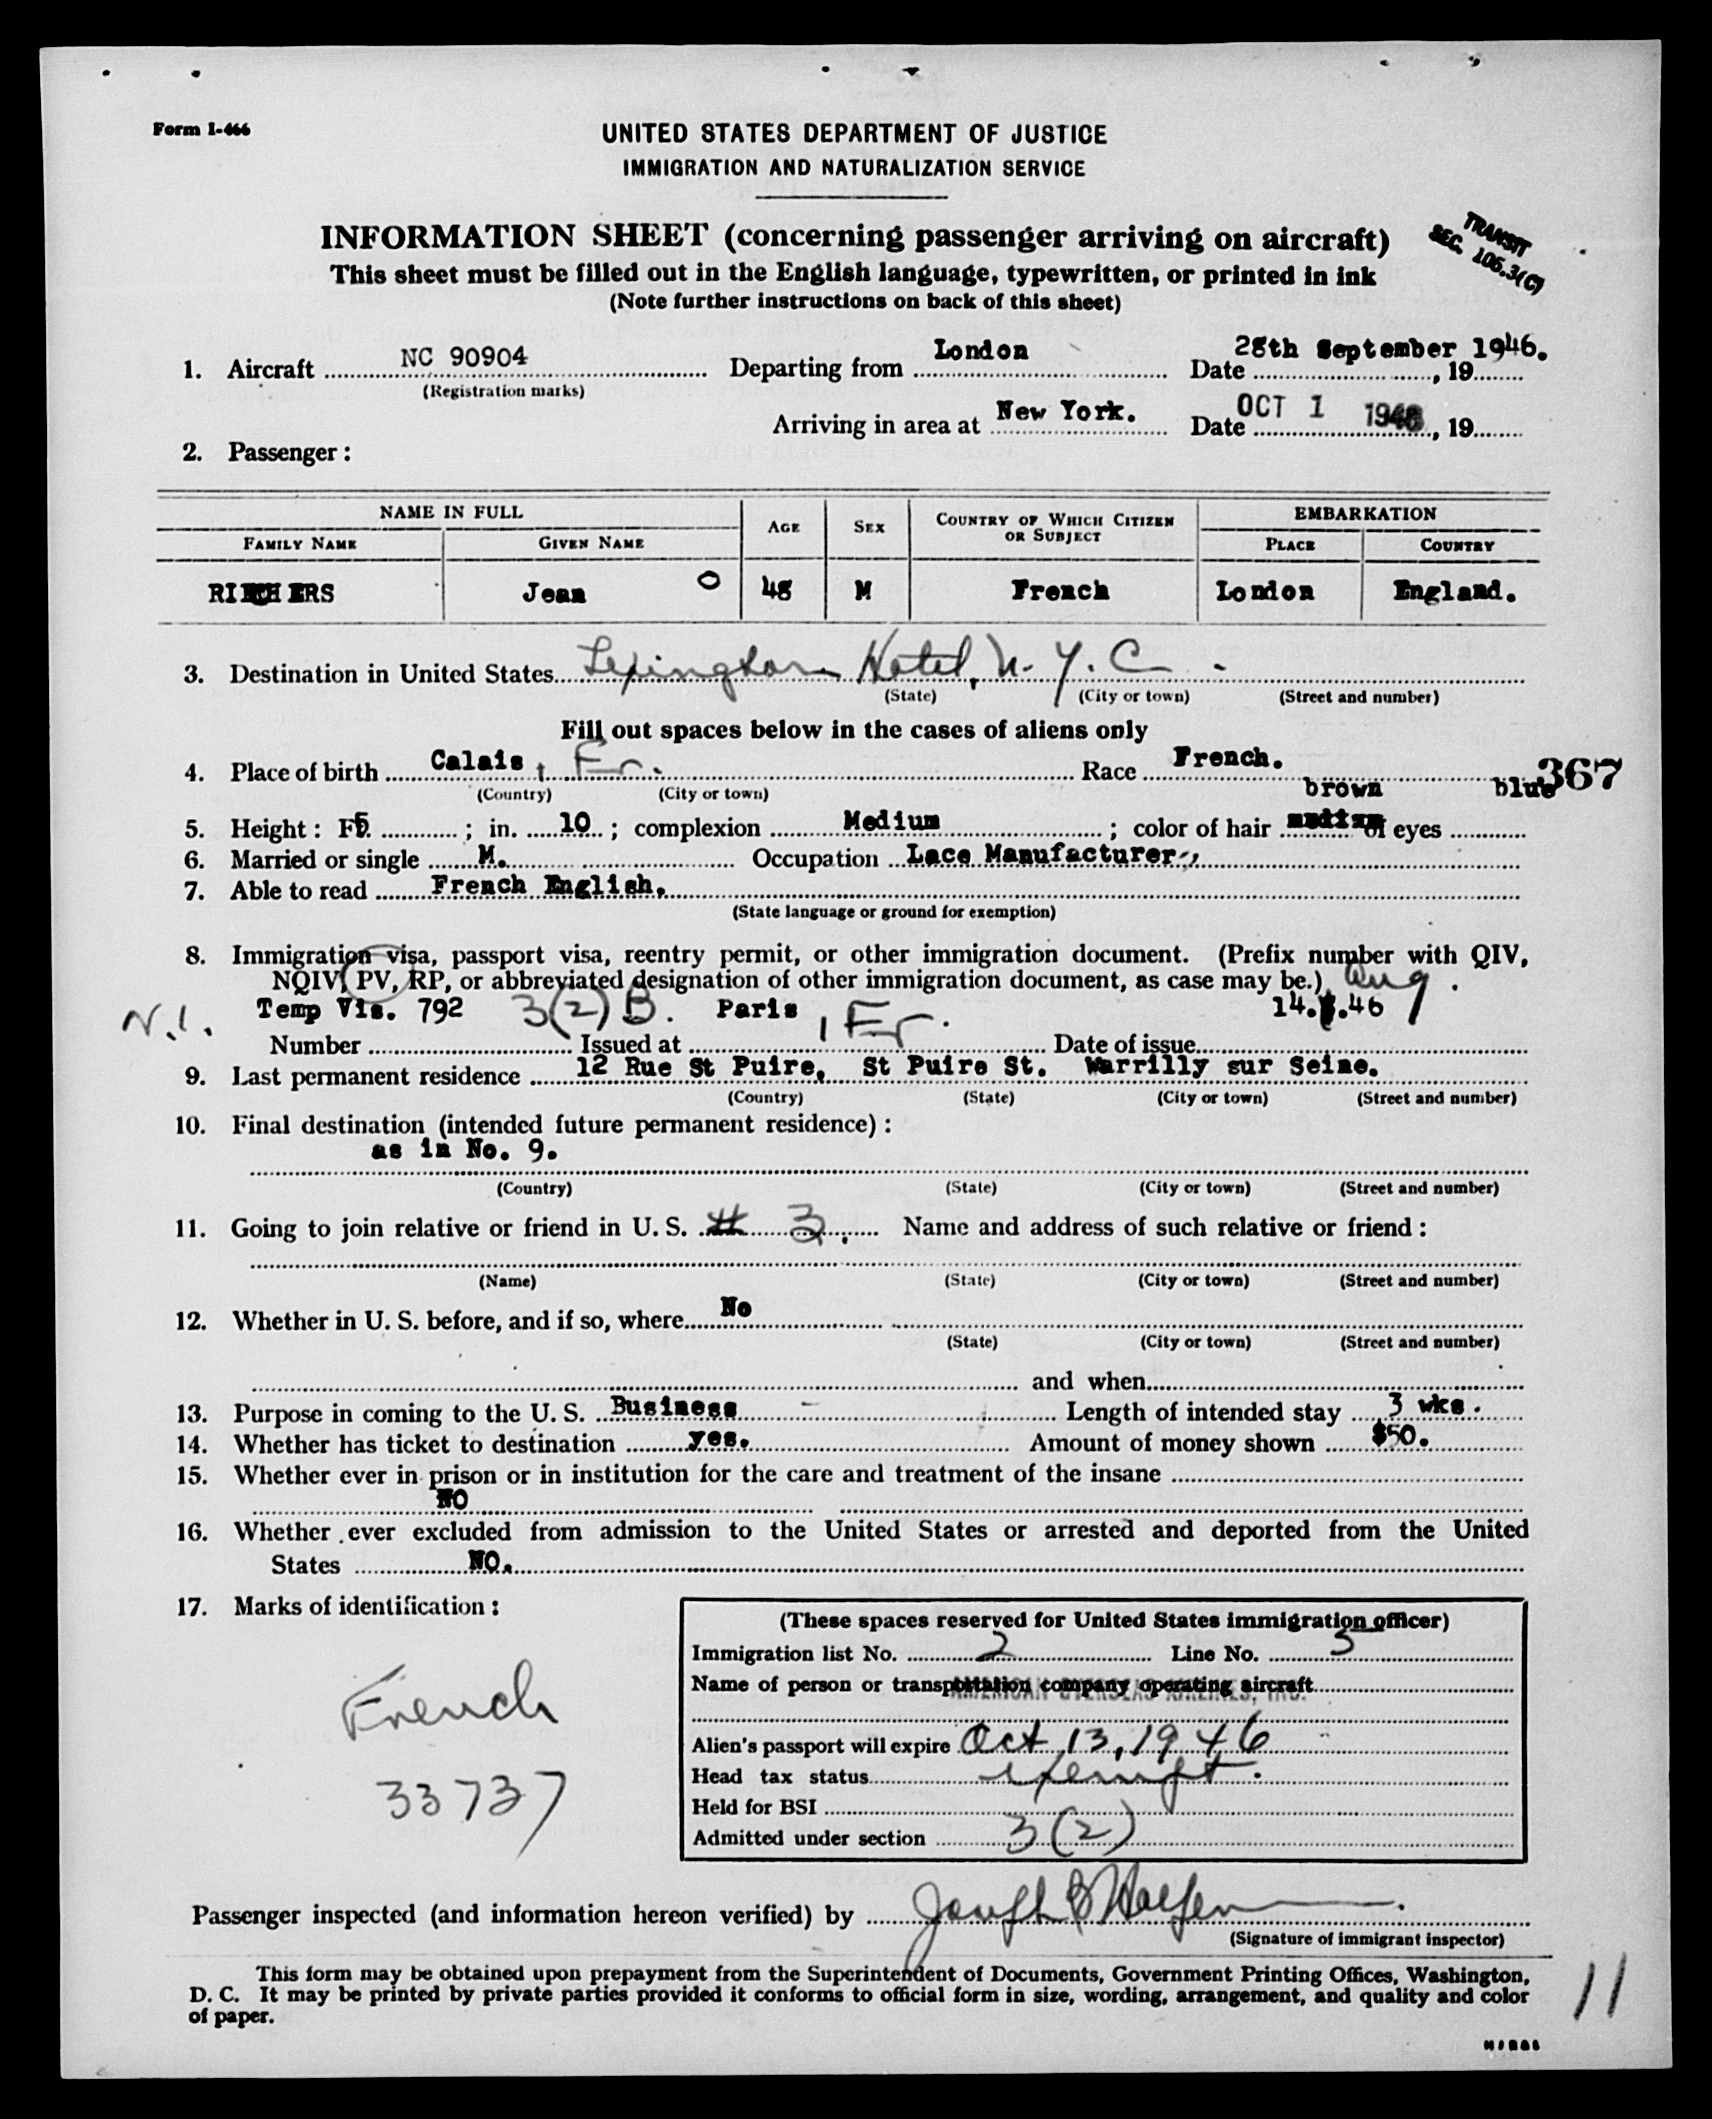 Form I-466
UNITED STATES DEPARTMENT OF JUSTICE
IMMIGRATION AND NATURALIZATION SERVICE
INFORMATION SHEET (concerning passenger arriving on aircraft)
TRANSIT
SEC. 106.3(C)
This sheet must be filled out in the English language, typewritten, or printed in ink
(Note further instructions on back of this sheet)
1. Aircraft NC 90904 Departing from London Date 28th September 1946. , 19
(Registration marks)
Arriving in area at New York. Date OCT 1 1946 , 19
2. Passenger:
NAME IN FULL AGE SEX COUNTRY OF WHICH CITIZEN OR SUBJECT EMBARKATION
FAMILY NAME GIVEN NAME PLACE COUNTRY
Jean O 48 M French London England.
3. Destination in United States Lexington Hotel, N.Y.C.
(State) (City or town) (Street and number)
Fill out spaces below in the cases of aliens only
4. Place of birth Calais, Fr. Race French.
(Country) (City or town) brown blue 367
5. Height: Ft. 5 ; in. 10 ; complexion Medium ; color of hair of eyes
6. Married or single M. Occupation Lace Manufacturer
7. Able to read French English.
(State language or ground for exemption)
8. Immigration visa, passport visa, reentry permit, or other immigration document. (Prefix number with QIV,
NQIV, PV, RP, or abbreviated designation of other immigration document, as case may be.) Aug.
N.I. Temp Vis. 792 3(2)B. Paris, Fr. 14. .46
Number Issued at Date of issue
9. Last permanent residence 12 Rue St Puire, St Puire St. Warrilly sur Seine.
(Country) (State) (City or town) (Street and number)
10. Final destination (intended future permanent residence):
as in No. 9.
(Country) (State) (City or town) (Street and number)
11. Going to join relative or friend in U. S. # 3. Name and address of such relative or friend:
(Name) (State) (City or town) (Street and number)
12. Whether in U. S. before, and if so, where No
(State) (City or town) (Street and number)
and when
13. Purpose in coming to the U. S. Business Length of intended stay 3 wks.
14. Whether has ticket to destination yes. Amount of money shown $50.
15. Whether ever in prison or in institution for the care and treatment of the insane
NO
16. Whether ever excluded from admission to the United States or arrested and deported from the United
States NO.
17. Marks of identification:
French
33737
(These spaces reserved for United States immigration officer)
Immigration list No. 2 Line No. 3
Name of person or transportation company operating aircraft
AMERICAN OVERSEAS AIRLINES, INC.
Alien's passport will expire Oct 13, 1946
Head tax status exempt.
Held for BSI
Admitted under section 3(2)
Passenger inspected (and information hereon verified) by
(Signature of immigrant inspector)
This form may be obtained upon prepayment from the Superintendent of Documents, Government Printing Offices, Washington,
D. C. It may be printed by private parties provided it conforms to official form in size, wording, arrangement, and quality and color
of paper.
11